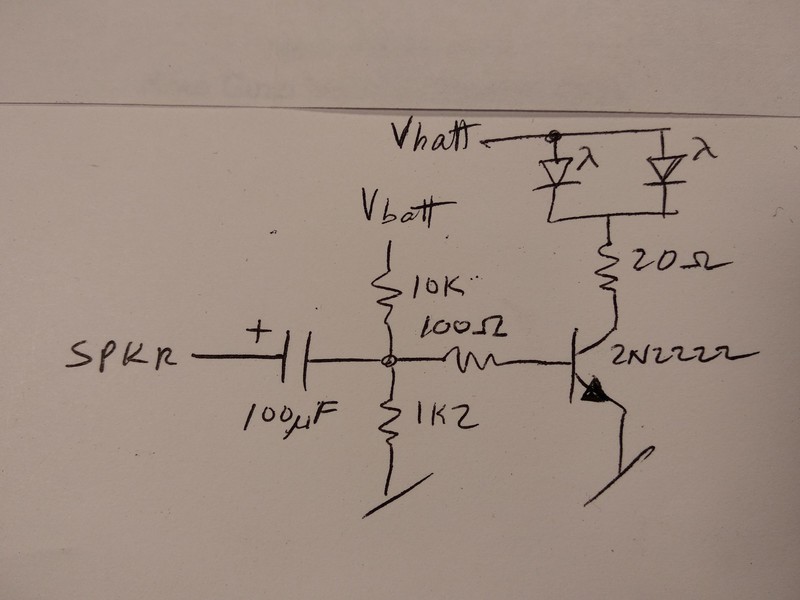 Vbatt
λ
λ
Vbatt
20Ω
10K
100Ω
SPKR
+
2N2222
100μF
1K2